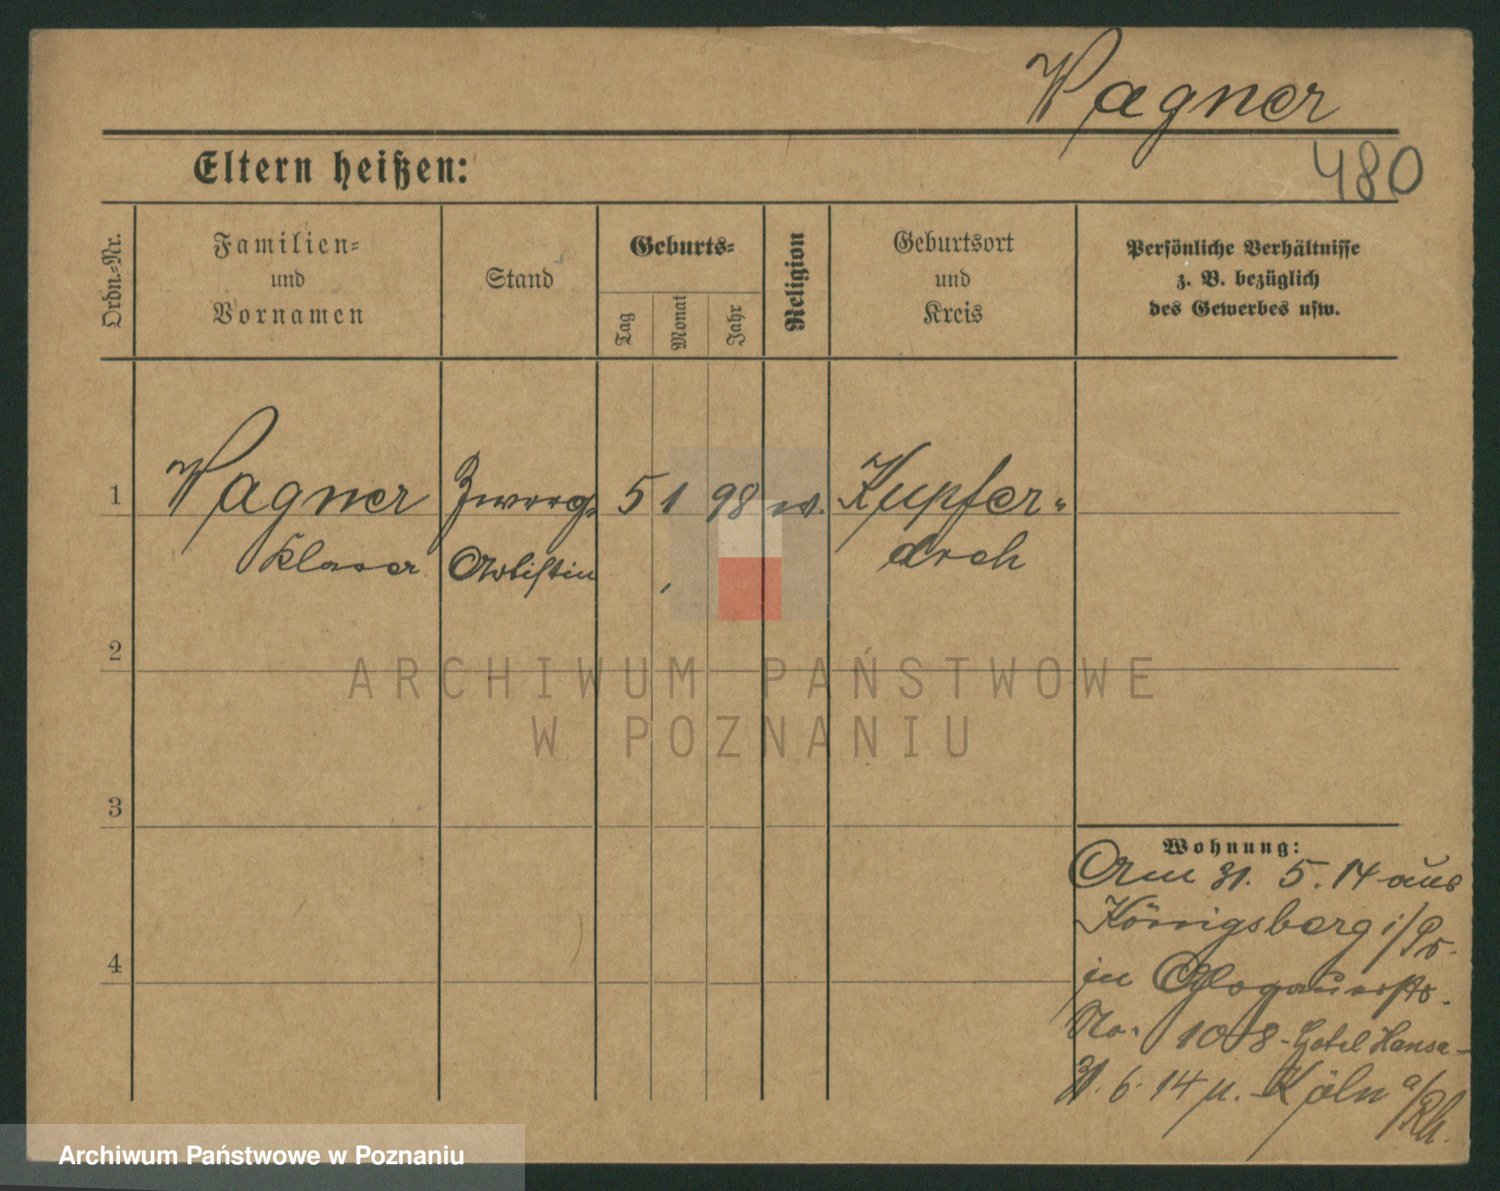 Wagner
480
Eltern heißen:
Ordn.-Nr.
Familien-
und
Vornamen
Stand
Geburts-
Tag
Monat
Jahr
Religion
Geburtsort
und
Kreis
Persönliche Verhältnisse
z. B. bezüglich
des Gewerbes usw.
1
Wagner
Zwerg-
5
1
98
Kupfer-
Artistin
dreh
2
ARCHIWUM PAŃSTWOWE
W POZNANIU
3
Wohnung:
Am 31. 5. 14 aus
Königsberg i/Pr.
4
in Glogauerstr.
No. 108 - Hotel Hansa -
6. 14 Köln a/Rh.
Archiwum Państwowe w Poznaniu